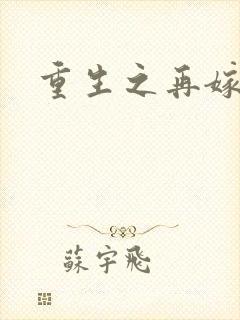 重生之再嫁
蘇宇飛